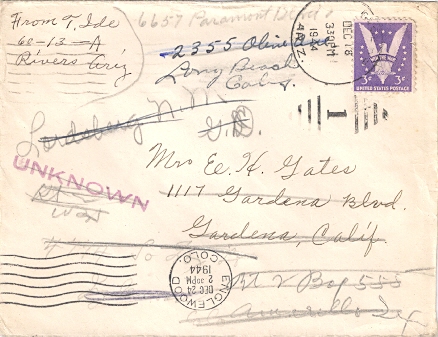 From T, Ide
60-13-A
Rivers Ariz
6657 Paramont Blvd
2355 Olive Ave
Long Beach
Calif.
DEC 18
3 30 PM
1944
ARIZ.
3¢ 3¢
UNITED STATES POSTAGE
1
Lordsburg N.M.
G.D.
UNKNOWN
Mrs E. K. Gates
1117 Gardena Blvd.
Gardena, Calif.
West
ENGLEWOOD
DEC 24
2 30 PM
1944
COLO.
Rt 2 Box 555
Amarillo Tex